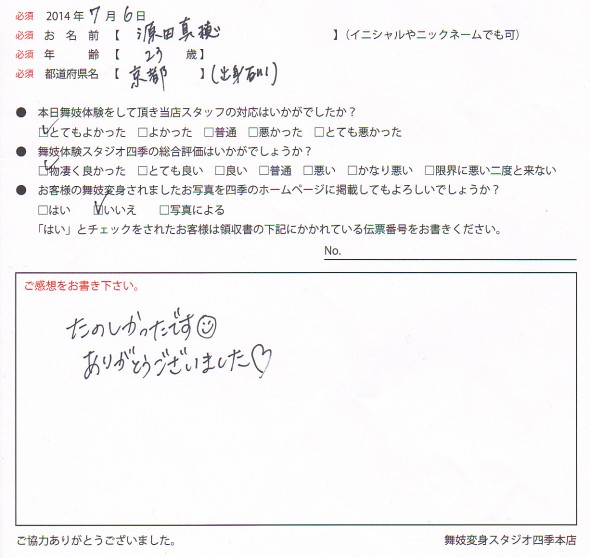 必須 2014 年 7 月 6 日
必須 お 名 前 【 源田真穂 】(イニシャルやニックネームでも可)
必須 年 齢 【 23 歳】
必須 都道府県名 【 京都 】(出身石川)
● 本日舞妓体験をして頂き当店スタッフの対応はいかがでしたか?
☑とてもよかった □よかった □普通 □悪かった □とても悪かった
● 舞妓体験スタジオ四季の総合評価はいかがでしょうか?
☑物凄く良かった □とても良い □良い □普通 □悪い □かなり悪い □限界に悪い二度と来ない
● お客様の舞妓変身されましたお写真を四季のホームページに掲載してもよろしいでしょうか?
□はい ☑いいえ □写真による
「はい」とチェックをされたお客様は領収書の下記にかかれている伝票番号をお書きください。
No.
ご感想をお書き下さい。
たのしかったです☺
ありがとうございました♡
ご協力ありがとうございました。 舞妓変身スタジオ四季本店